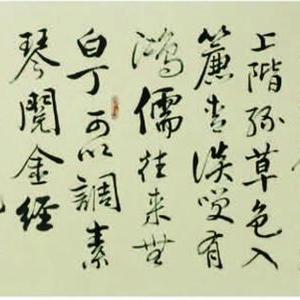 上階綠草色入
簾青談咲有
鴻儒往来無
白丁可以調素
琴閱金經